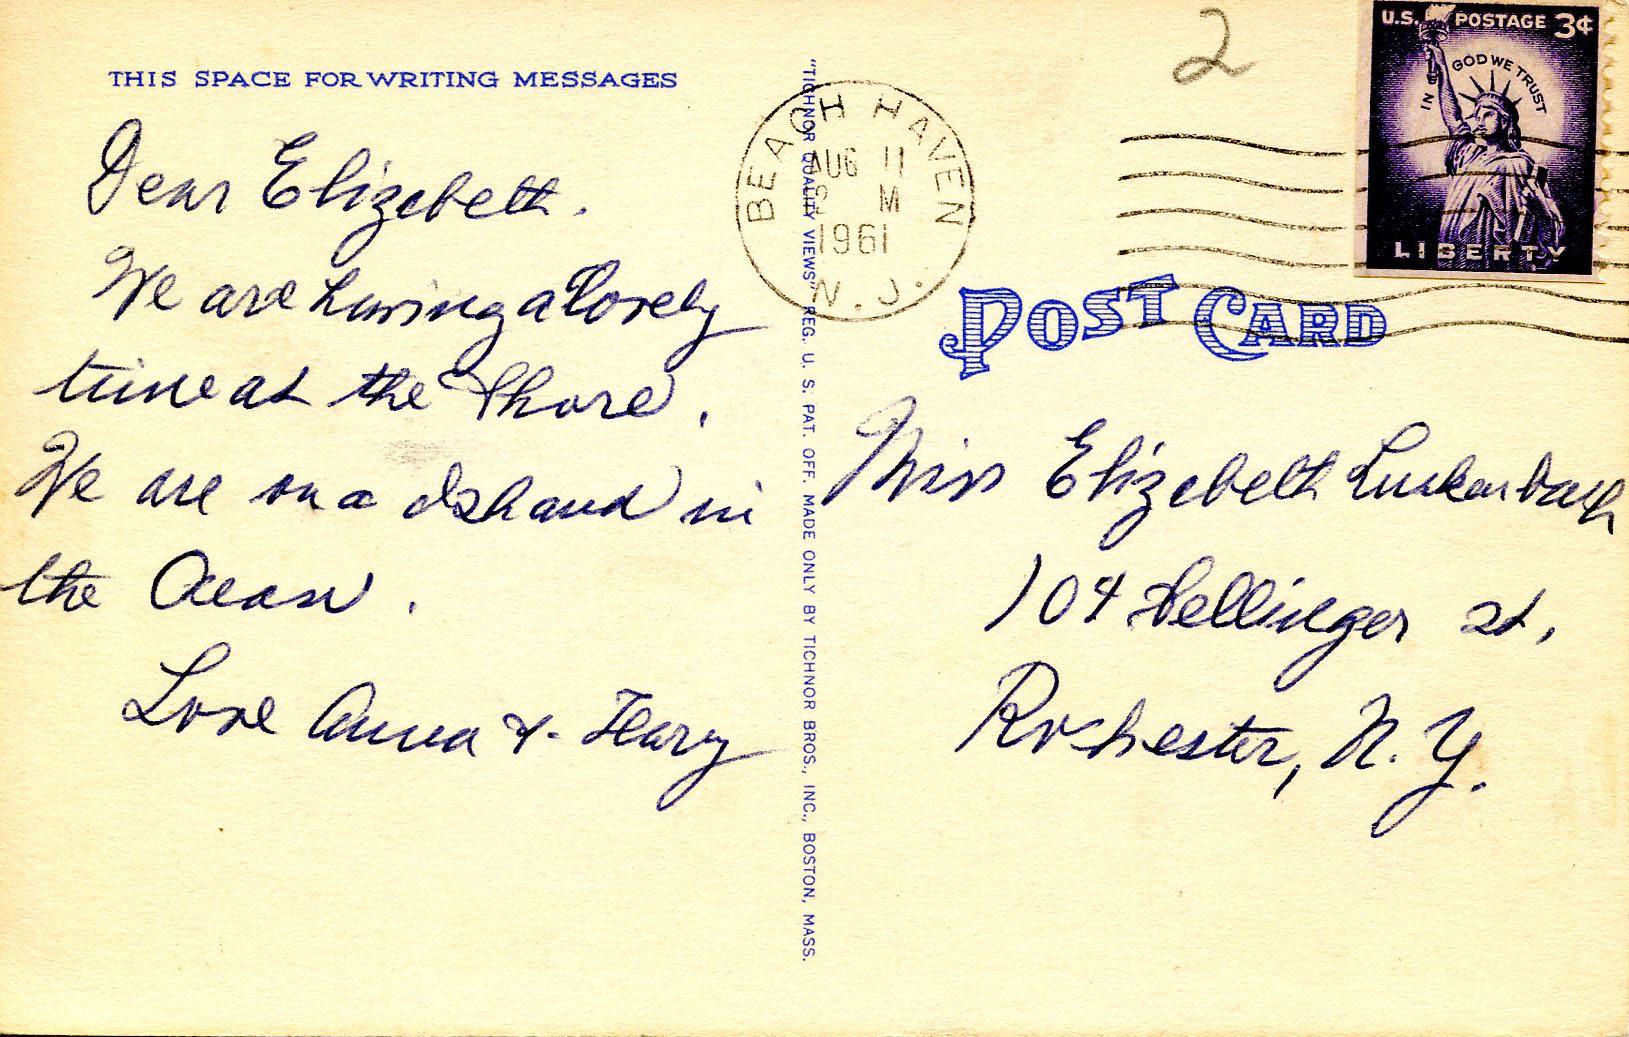 THIS SPACE FOR WRITING MESSAGES
Dear Elizebeth.
We are having a lovely
time at the Shore.
We are on a Ishand in
the Ocean.
Love Anna & Harry
"TICHNOR QUALITY VIEWS" REG. U. S. PAT. OFF. MADE ONLY BY TICHNOR BROS., INC., BOSTON, MASS.
BEACH HAVEN
AUG 11
M
1961
N.J.
2
U.S. POSTAGE 3¢
IN GOD WE TRUST
LIBERTY
POST CARD
Miss Elizebeth
104 Dellinger St,
Rochester, N. Y.